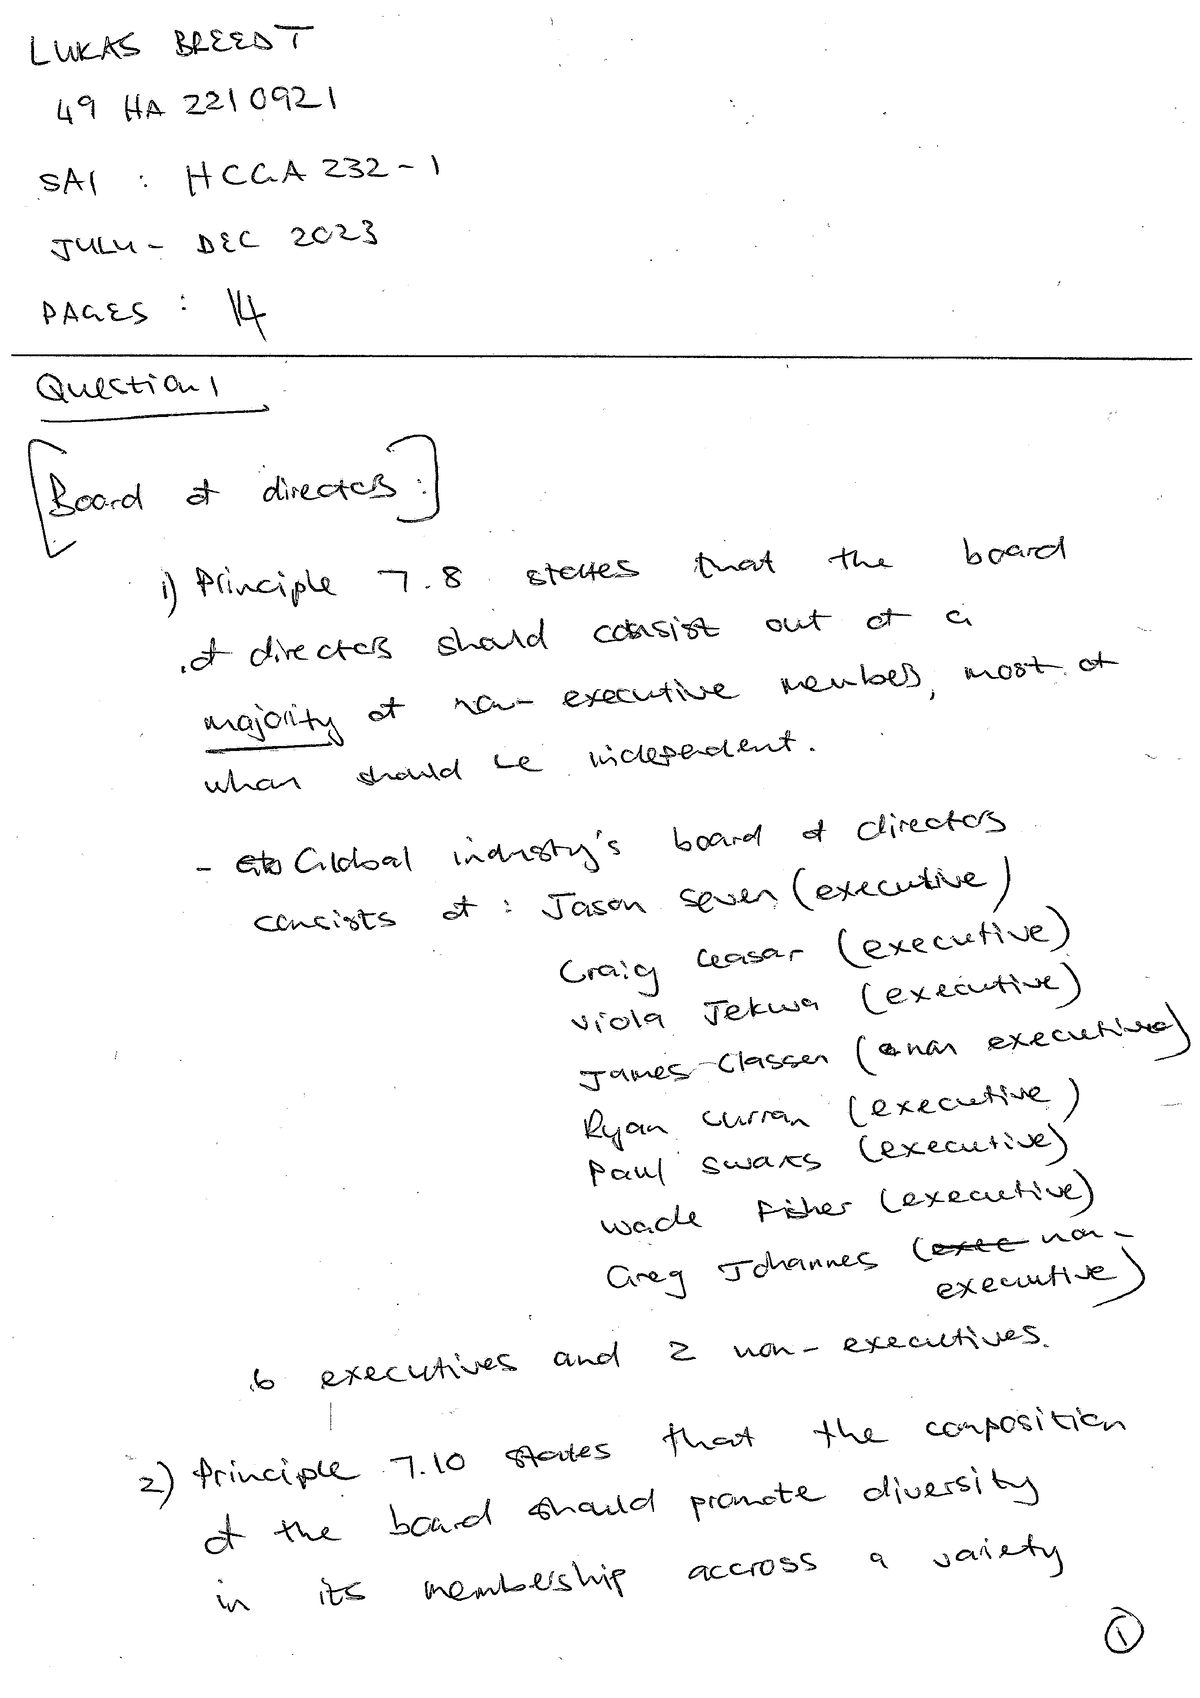 LUKAS BREEDT
49 HA 2210921
SA1 : HCGA 232-1
JULY - DEC 2023
PAGES : 14
Question 1
[Board of directors:]
1) Principle 7.8 states that the board
of directors should consist out of a
majority of non-executive members, most of
whom should be independent.
- Global industry's board of directors
consists of : Jason Seven (executive)
Craig Ceasar (executive)
Viola Jekwa (executive)
James Classen (non executive)
Ryan Curran (executive)
Paul Swarts (executive)
Wade Fisher (executive)
Greg Johannes (exec non-
executive)
6 executives and 2 non-executives.
2) Principle 7.10 states that the composition
of the board should promote diversity
in its membership accross a variety
1